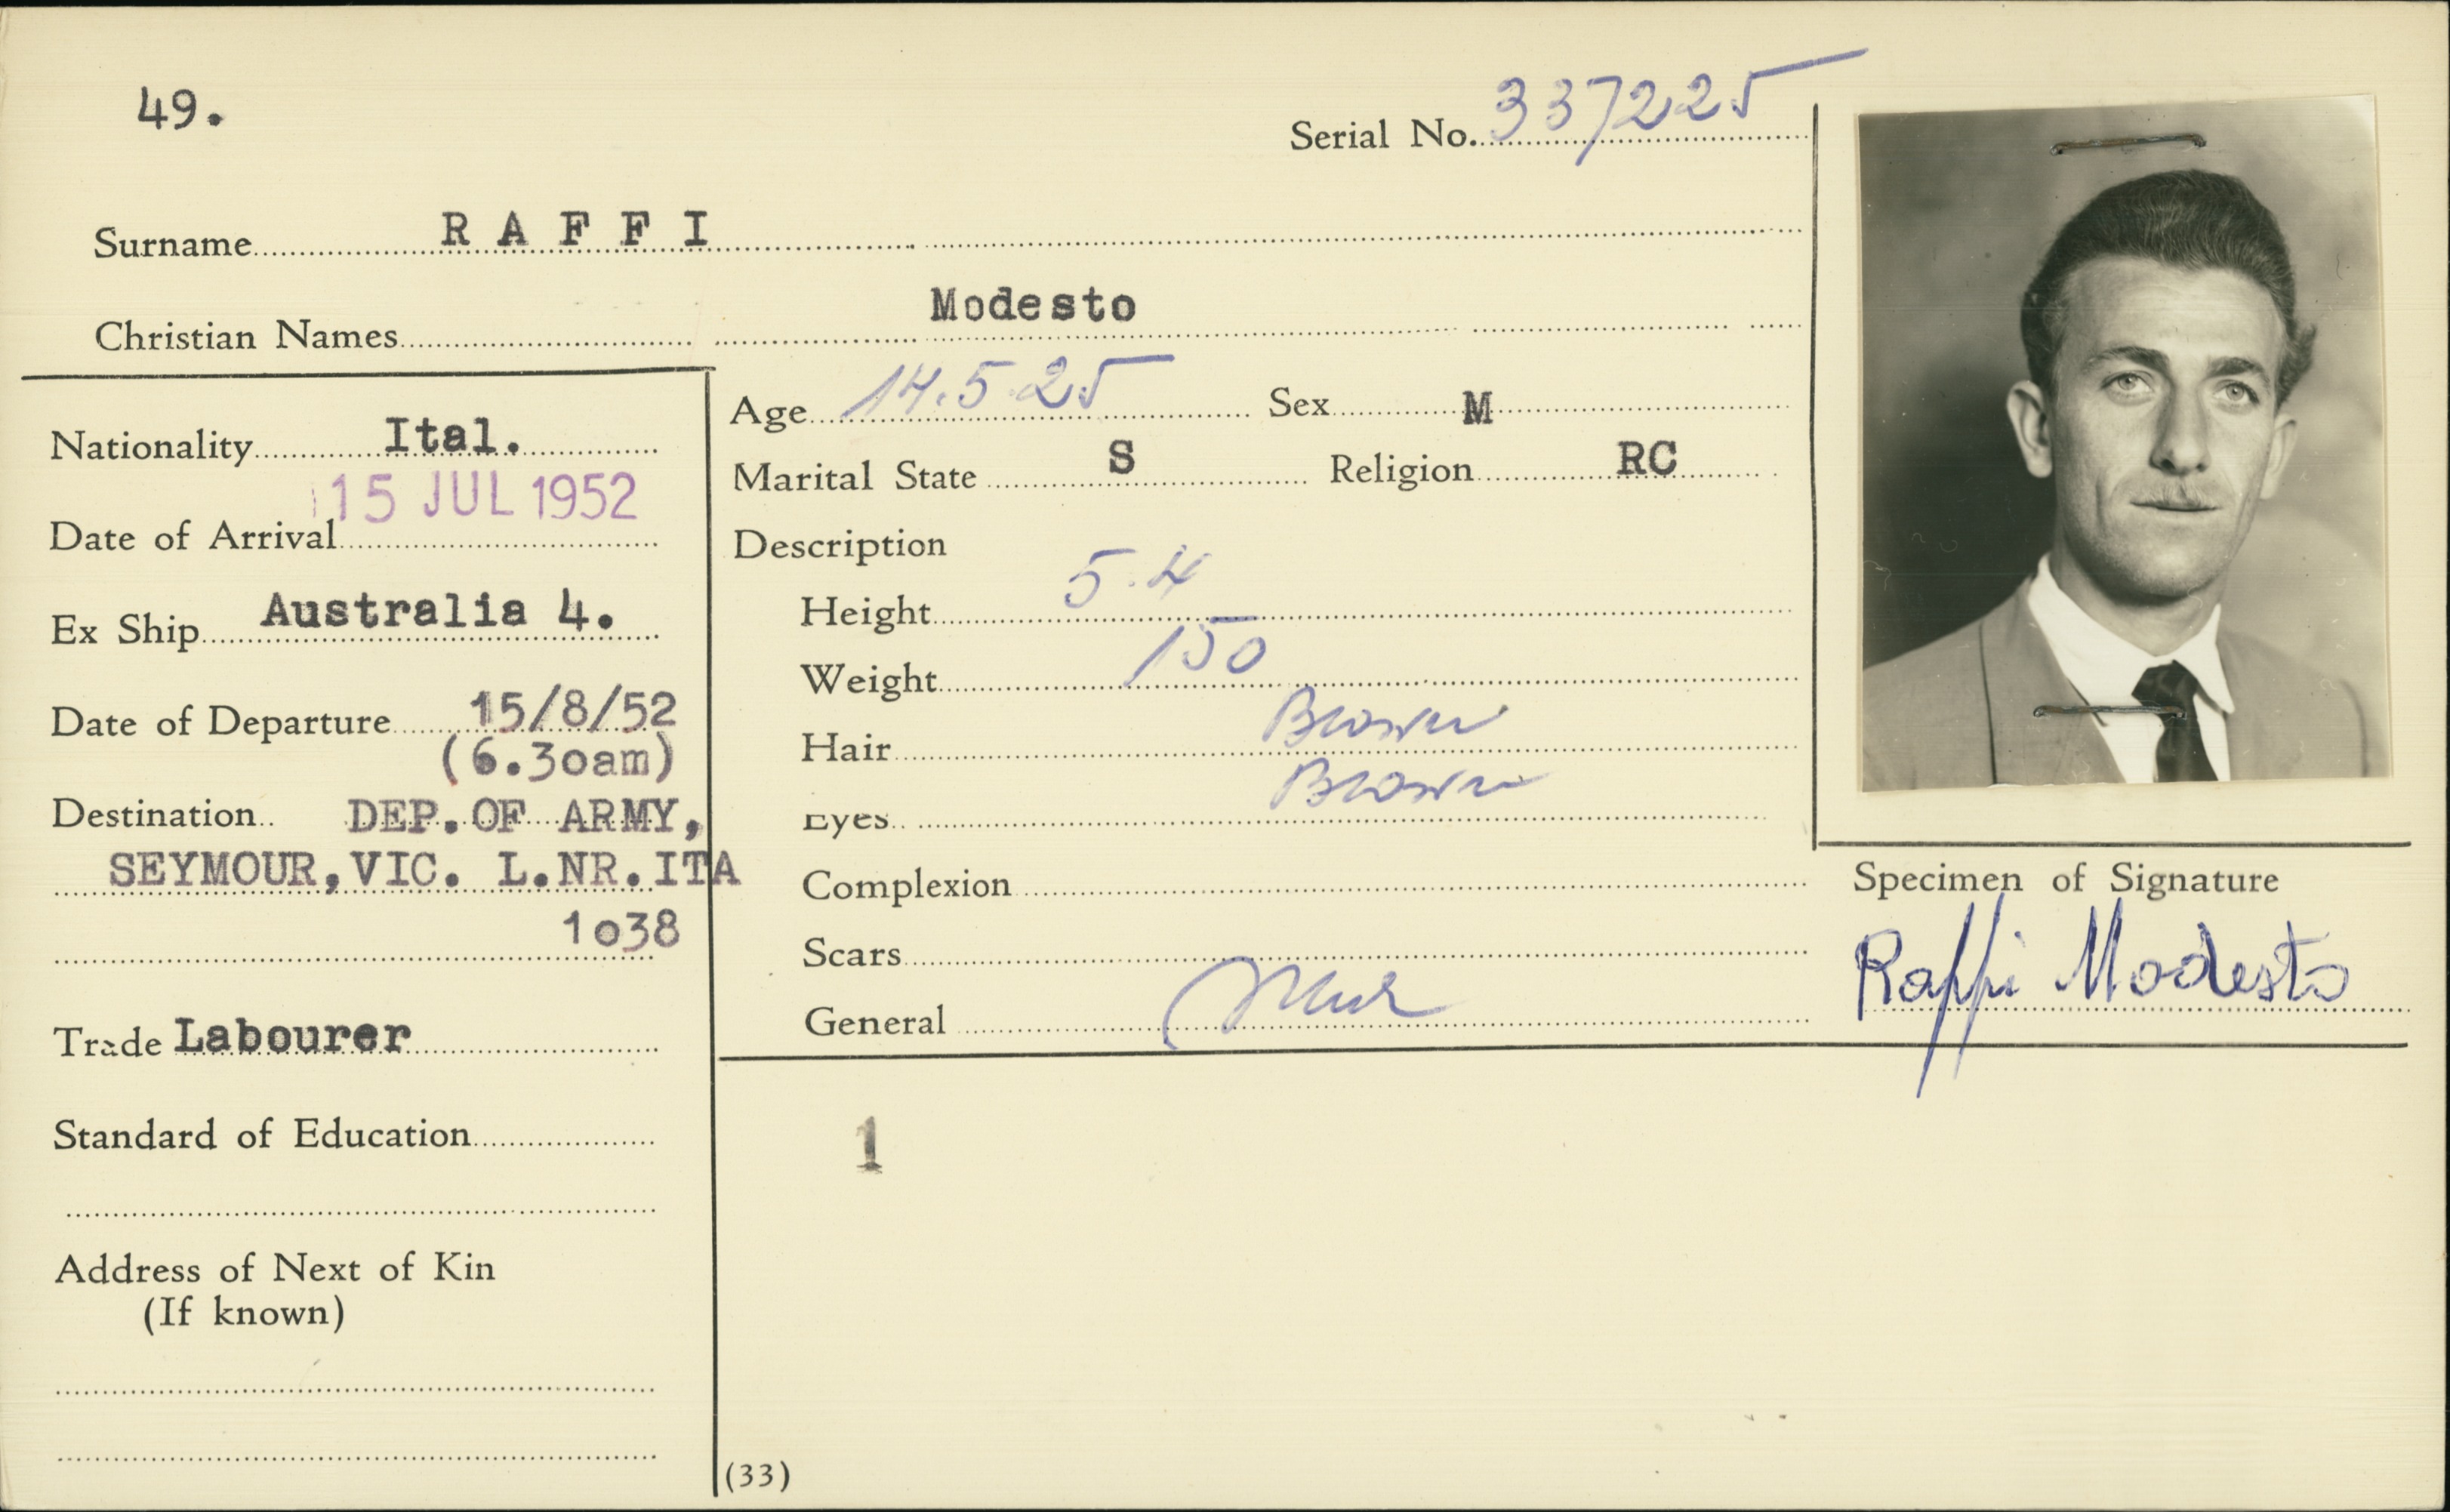 49.
Serial No. 337225
Surname R A F F I
Christian Names Modesto
Nationality Ital.
Date of Arrival 15 JUL 1952
Ex Ship Australia 4.
Date of Departure 15/8/52
(6.30am)
Destination DEP. OF ARMY,
SEYMOUR, VIC. L.NR. ITA
1038
Trade Labourer
Standard of Education
Address of Next of Kin
(If known)
Age 14.5.25 Sex M
Marital State S Religion RC
Description
Height 5.4
Weight 150
Hair Brown
Eyes Brown
Complexion
Scars
General
Specimen of Signature
Raffi Modesto
1
(33)